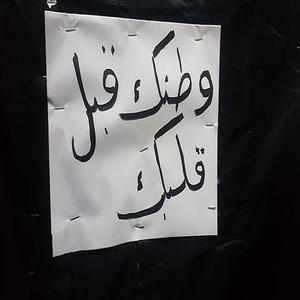 وطنك قبل
قلبك